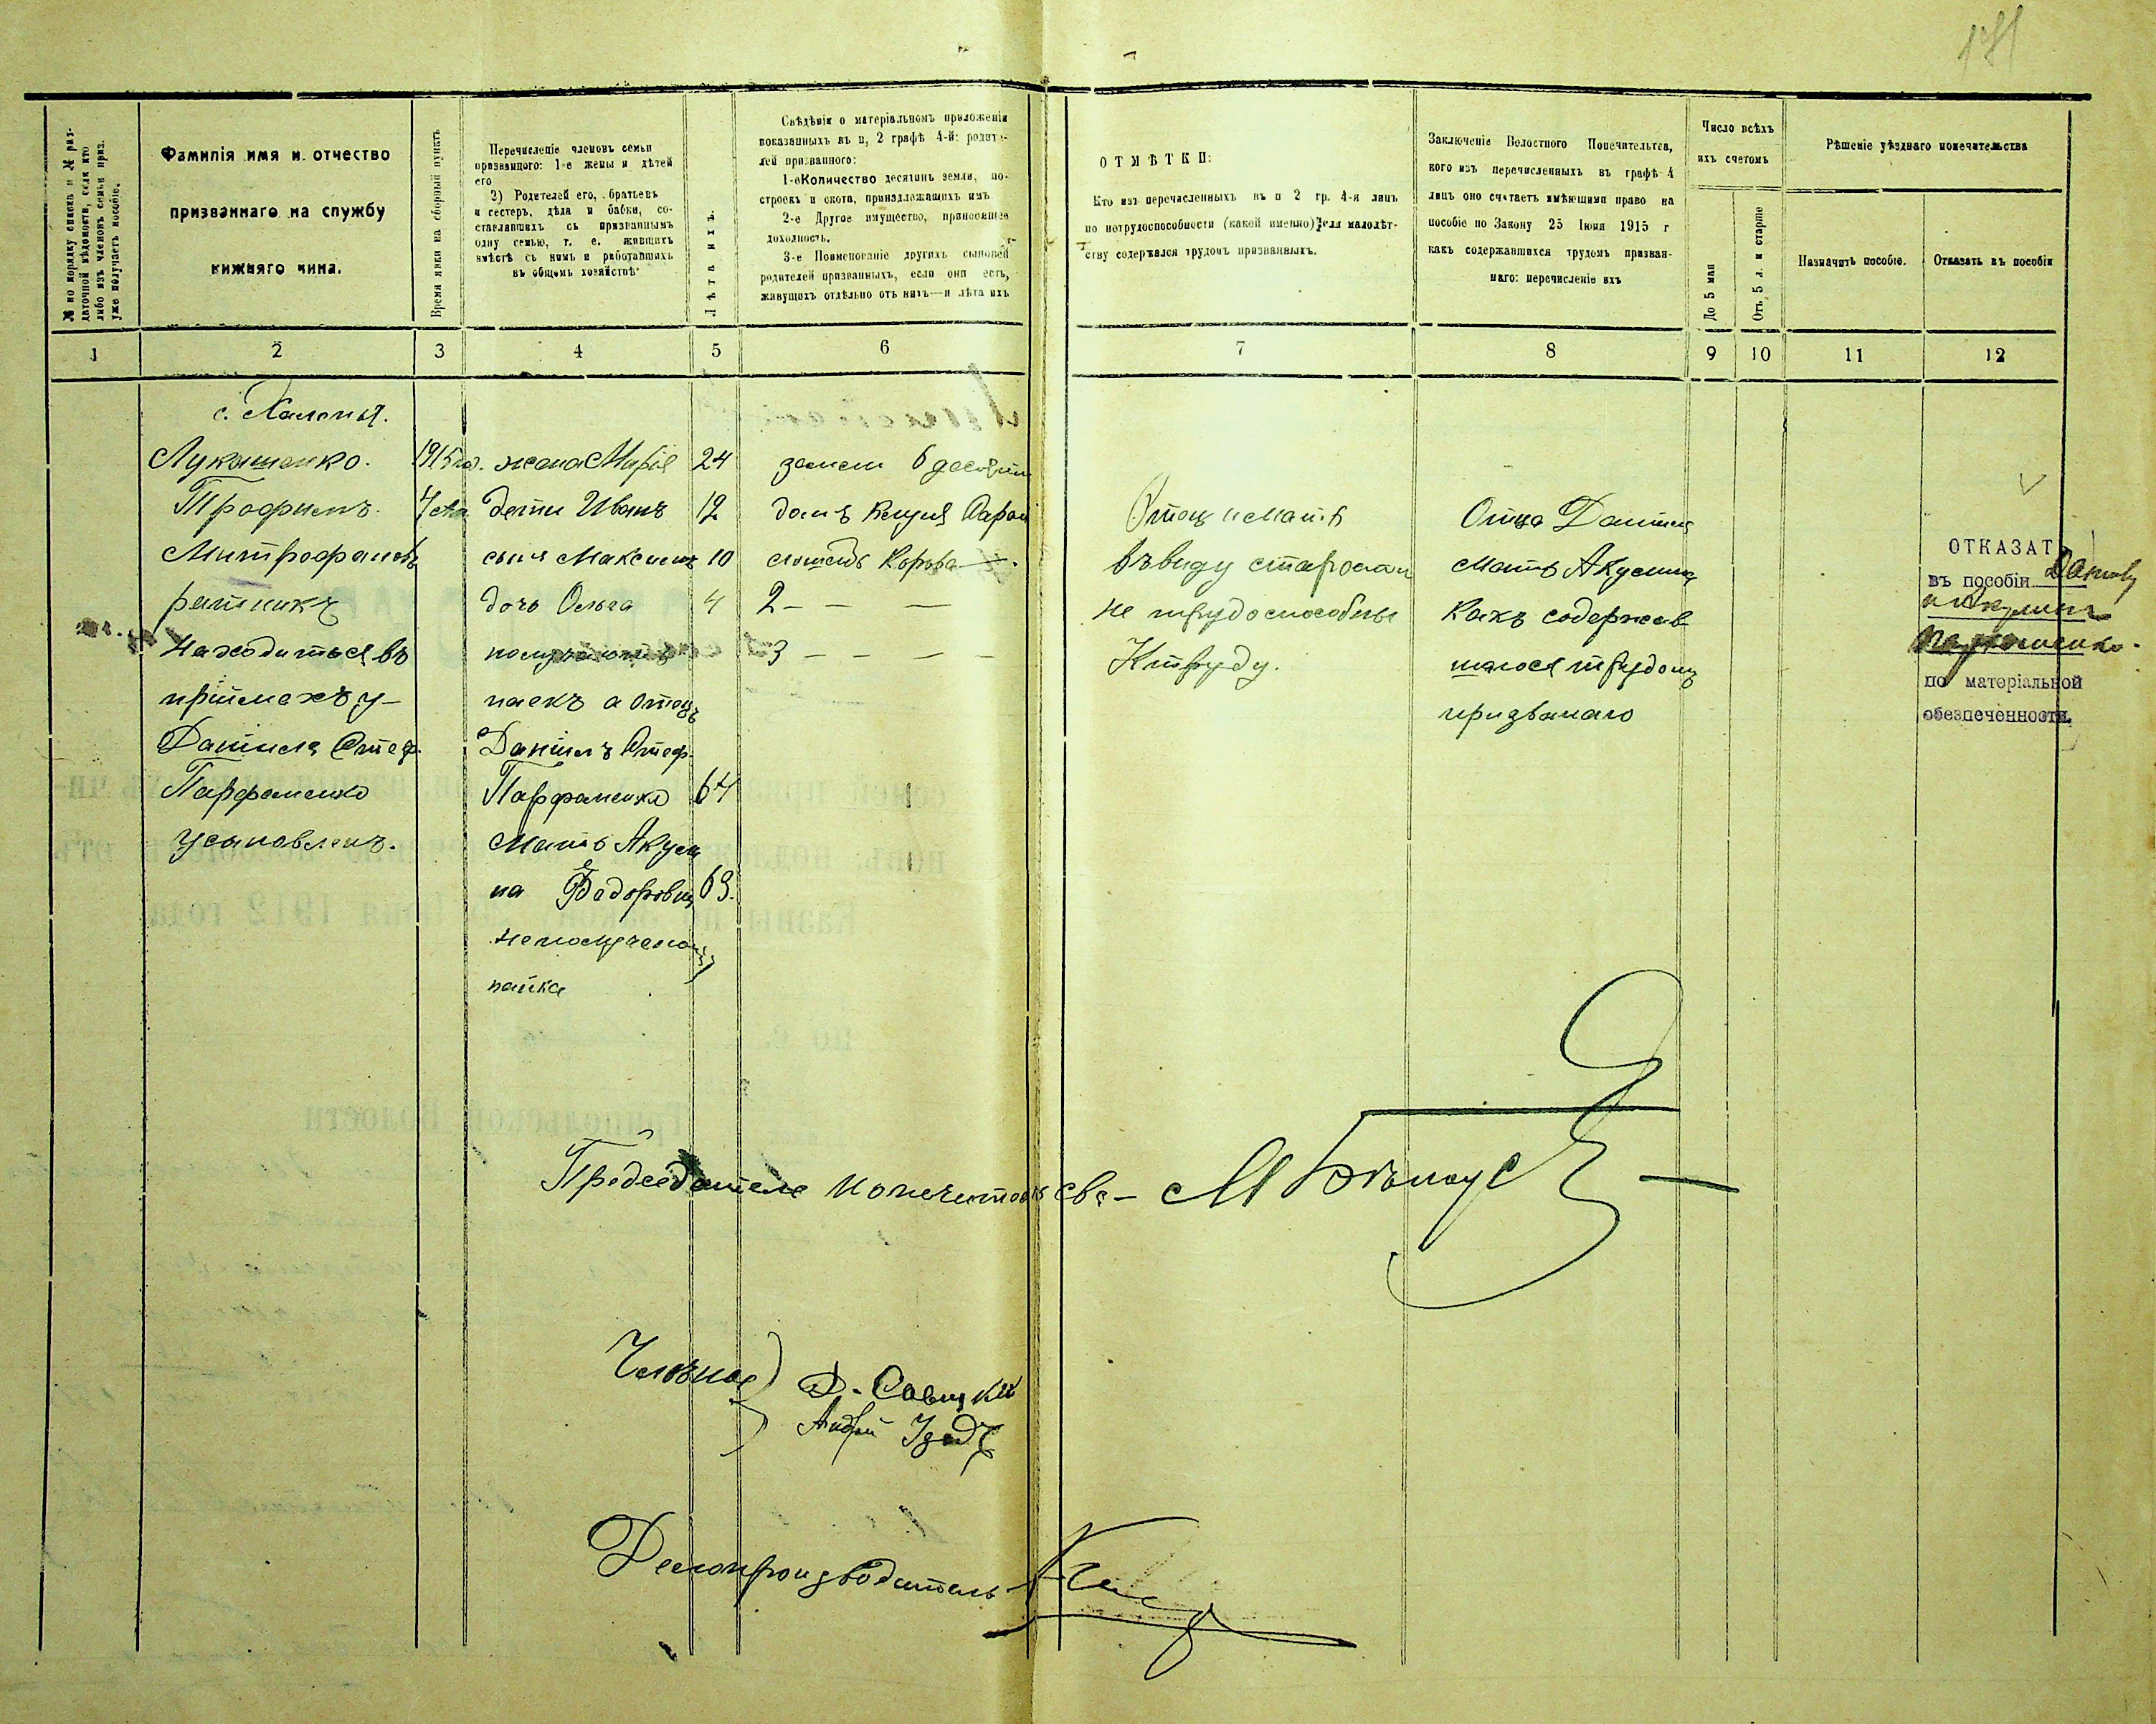 № по порядку списка и № раз-
даточной вѣдомости, если кто
либо изъ членовъ семьи приз.
уже получаетъ пособіе.
Фамилія имя и отчество
призваннаго на службу
нижняго чина.
Время явки на сборный пунктъ
Перечисленіе членовъ семьи
призваннаго: 1-е жены и дѣтей
его
2) Родителей его, братьевъ
и сестеръ, дѣда и бабки, со-
ставлявшихъ съ призваннымъ
одну семью, т. е. жившихъ
вмѣстѣ съ нимъ и работавшихъ
въ общемъ хозяйствѣ
Лѣта ихъ.
Свѣдѣнія о матеріальномъ приложеніи
показанныхъ въ п, 2 графѣ 4-й: родите-
лей призваннаго:
1-е Количество десятинъ земли, по-
строекъ и скота, принадлежащихъ имъ
2-е Другое имущество, приносящее
доходность.
3-е Поименованіе другихъ сыновей
родителей призванныхъ, если они есть,
живущихъ отдѣльно отъ нихъ—и лѣта ихъ
ОТМѢТКИ:
Кто изъ перечисленныхъ въ п 2 гр. 4-я лицъ
по нетрудоспособности (какой именно) или малолѣт-
ству содержался трудомъ призванныхъ.
Заключеніе Волостного Попечительства,
кого изъ перечисленныхъ въ графѣ 4
лицъ оно считаетъ имѣющими право на
пособіе по Закону 25 Іюня 1915 г
какъ содержавшихся трудомъ призван-
наго: перечисленіе ихъ
Число всѣхъ
ихъ счетомъ
До 5 мая
Отъ 5 л. и старше
Рѣшеніе уѣзднаго попечительства
Назначить пособіе.
Отказать въ пособіи
1 2 3 4 5 6 7 8 9 10 11 12
с. Халепья.
Лукашенко.
Трофимъ.
Митрофановъ
ратникъ
находиться въ
пріймахъ у
Даніила Стеф.
Парфоменко
усыновленъ.
1915 го.
жена Марія 24
дети Иванъ 12
сынъ Максимъ 10
дочь Ольга 4
получаютъ
паекъ а отецъ
Даніилъ Стеф.
Парфоменко 64
мать Акули
на Федоровна 63.
не получають
пайка
земли 6 десятин
домъ Клуня Сарай
лошадь Корова
2 – – –
3 – – – –
Отецъ и мать
въ виду старости
не трудоспособны
К труду.
Отца Даніила
мать Акулина
какъ содержав
шагося трудомъ
призванаго
ОТКАЗАТ
въ пособіи Данилу
и Акулине
по матеріальной
обезпеченности.
Председатель попечительсва – М Бѣлоус
Члены
Д. Савицкій
Андрей
Делопроизводитель